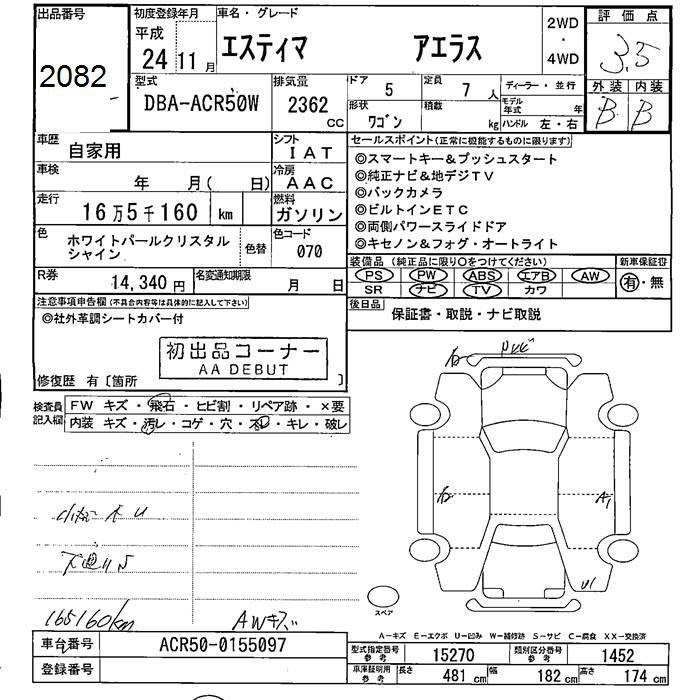 出品番号
2082
初度登録年月
平成
24 11 月
車名・グレード
エスティマ アエラス
2WD
・
4WD
評価点
3.5
外装 内装
B B
型式
DBA-ACR50W
排気量
2362
CC
ドア
5
定員
7 人
ディーラー・並行
形状
ワゴン
積載
kg
モデル年式
年
ハンドル 左・右
車歴
自家用
シフト
IAT
車検
年 月( 日)
冷房
AAC
走行
16万5千160 km
燃料
ガソリン
色
ホワイトパールクリスタル
シャイン
色替
色コード
070
R券
14,340 円
名変通知期限
月 日
セールスポイント(正常に機能するものに限ります)
◎スマートキー&プッシュスタート
◎純正ナビ&地デジTV
◎バックカメラ
◎ビルトインETC
◎両側パワースライドドア
◎キセノン&フォグ・オートライト
装備品 (純正品に限り○をつけてください)
新車保証書
PS PW ABS エアB AW
SR ナビ TV カワ
有・無
後日品
保証書・取説・ナビ取説
注意事項申告欄(不具合内容等は具体的に記入して下さい)
◎社外革調シートカバー付
初出品コーナー
AA DEBUT
修復歴 有〔箇所 〕
検査員
記入欄
FW キズ・飛石・ヒビ割・リペア跡・×要
内装 キズ・汚レ・コゲ・穴・スレ・キレ・破レ
下廻りS
165160km
AWキズ
A1
U1
スペア
A−キズ E−エクボ U−凹み W−補修跡 S−サビ C−腐食 XX−交換済
車台番号
ACR50-0155097
登録番号
型式指定番号
参考
15270
類別区分番号
参考
1452
車庫証明用
参考
長さ
481 cm
幅
182 cm
高さ
174 cm